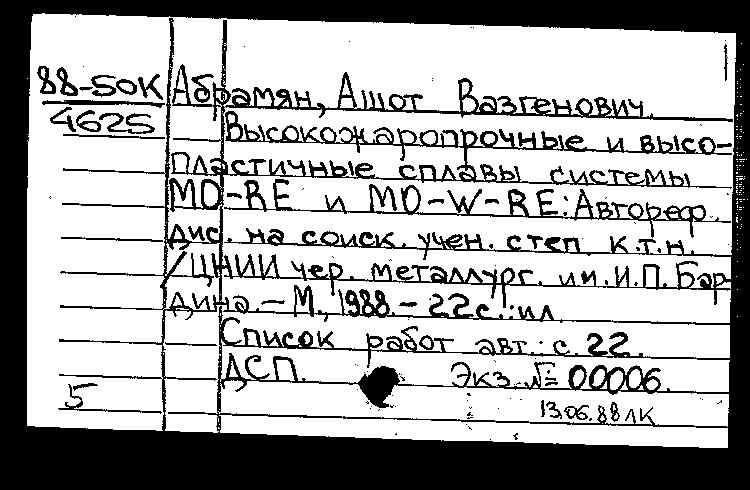 88-50К Абрамян, Ашот Вазгенович.
4625 Высокожаропрочные и высо-
пластичные сплавы системы
MO-RE и MO-W-RE: Автореф.
дис. на соиск. учен. степ. к.т.н.
/ЦНИИ чер. металлург. им. И.П. Бар-
дина. - М., 1988. - 22с.: ил.
Список работ авт.: с. 22.
ДСП. Экз. № 00006.
5
13.06.88 ЛК